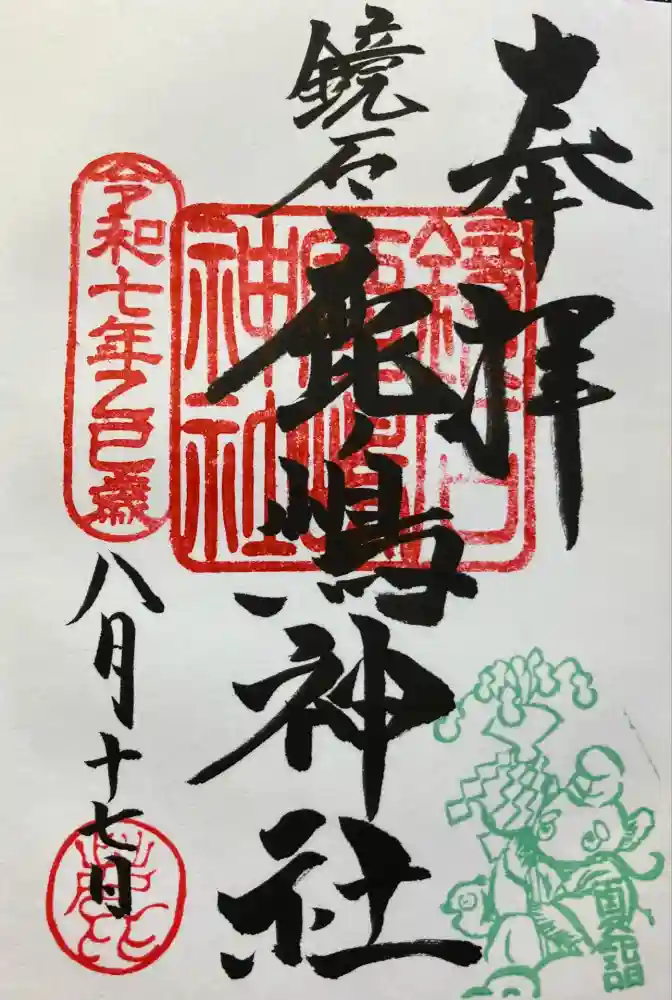 奉拝
鏡石
鹿嶋神社
鏡石
鹿嶋
神社
令和七年乙巳歳
八月十七日
夏詣